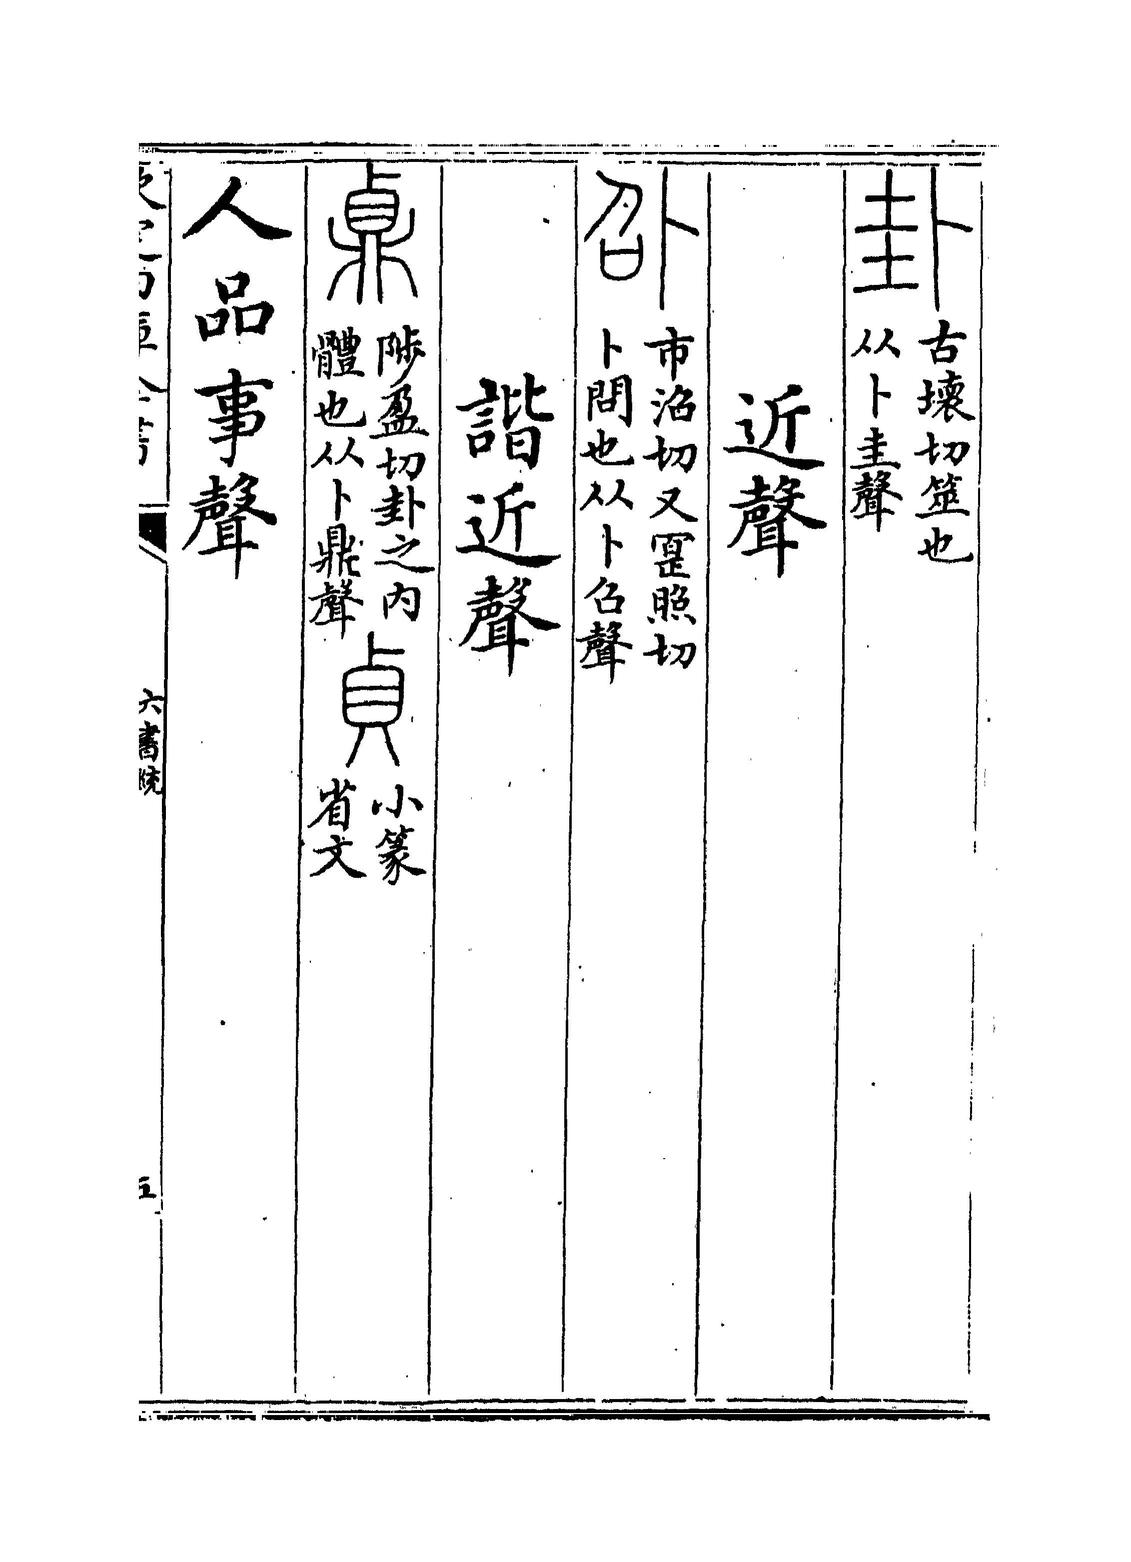 卦
古壞切筮也
从卜圭聲
近聲
𠧙
市沼切又寔照切
卜問也从卜召聲
諧近聲
鼑
陟盈切卦之内
體也从卜鼎聲
貞
小篆
省文
人品事聲
欽定四庫全書
六書統
五